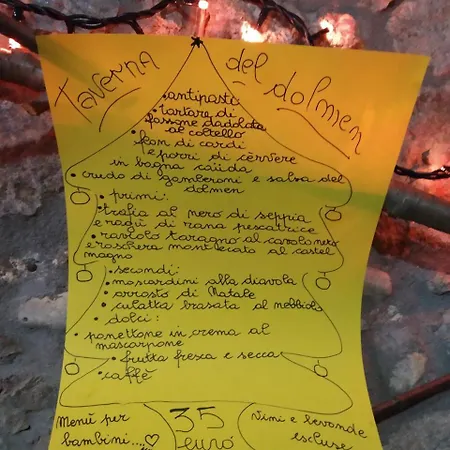 Taverna del dolmen
• antipasti
• tartare di
fassone dadolata
al coltello
• flan di cardi
e porri di cervere
in bagna càuda
• crudo di gamberoni e salsa del
dolmen
• primi:
• trofia al nero di seppia
e ragù di rana pescatrice
• raviolo saragno al cavolo nero
e raschera mantecato al castel
magno
• secondi:
• moscardini alla diavola
• arrosto di Natale
• culatta brasata al nebbiolo
• dolci:
• panettone in crema al
mascarpone
• frutta fresca e secca
• caffè
Menù per
bambini....
35
euro
Vini e bevande
escluse